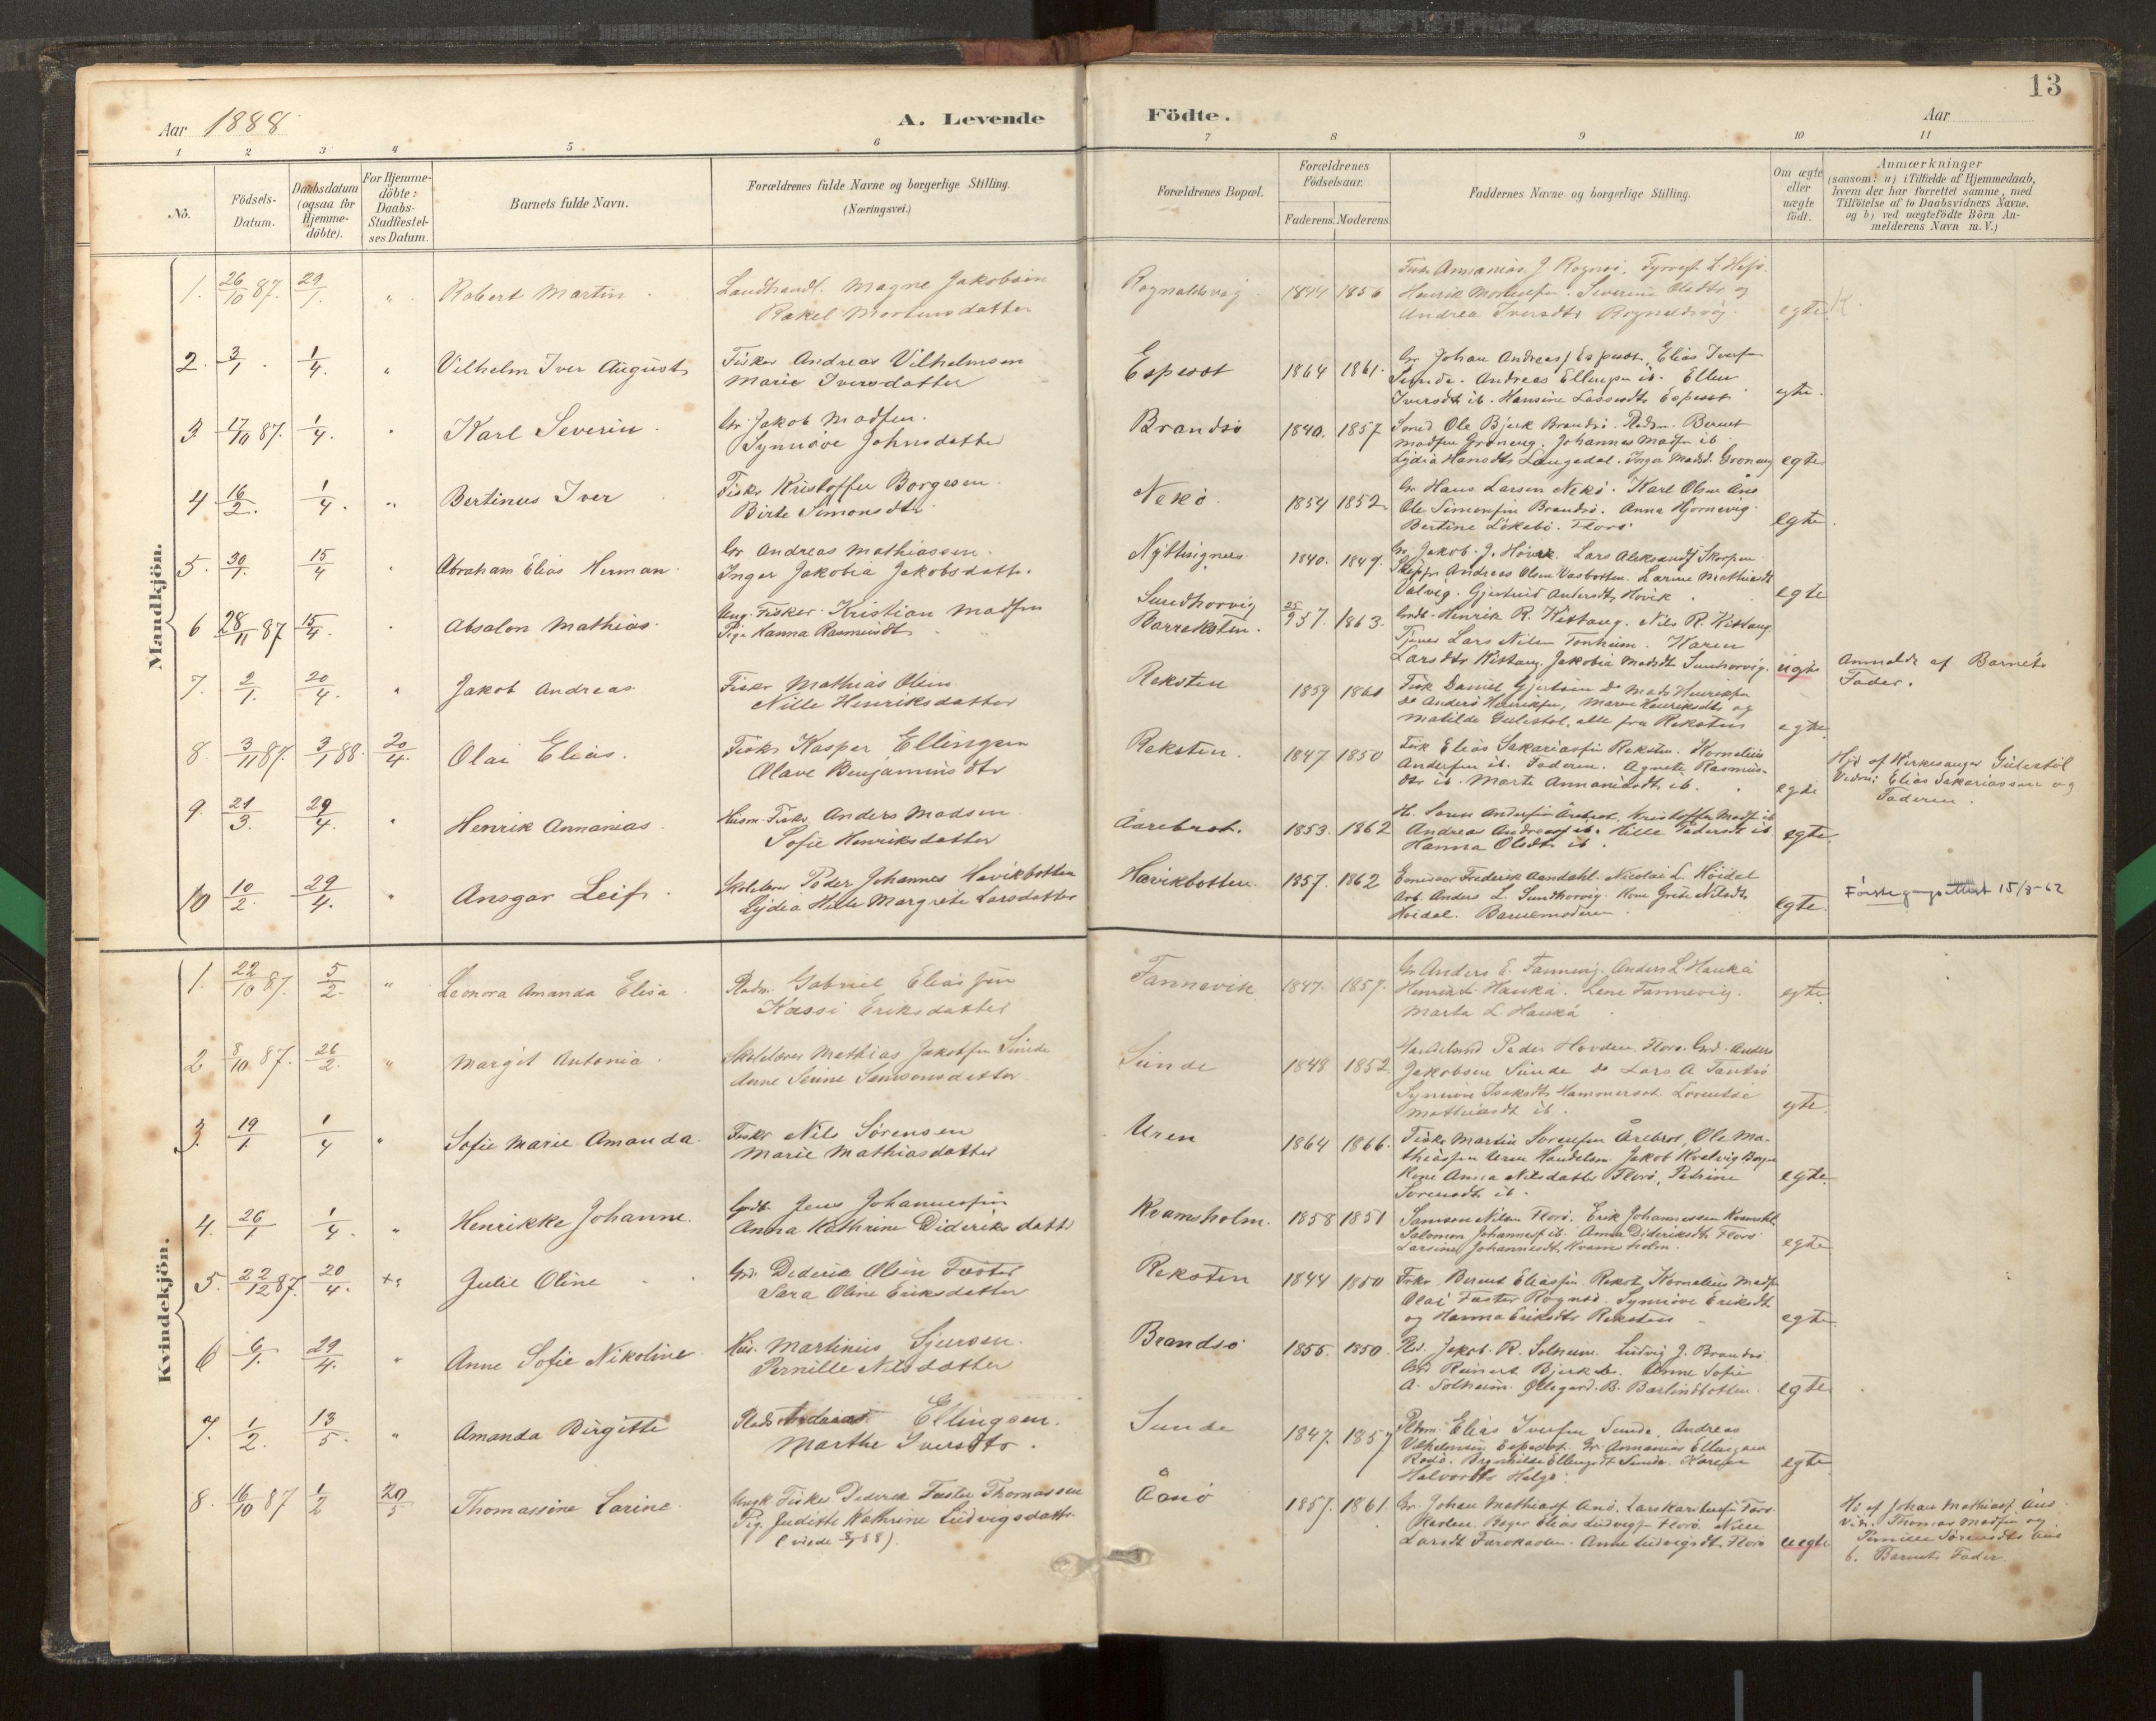 13
Aar 1888
A. Levende Födte.
Aar
1 2 3 4 5 6 7 8 9 10 11
Nö.
Födsels-Datum.
Daabsdatum (ogsaa for Hjemme-döbte).
For Hjemme-döbte: Daabs-Stadfæstel-ses Datum.
Barnets fulde Navn.
Forældrenes fulde Navne og borgerlige Stilling.
(Næringsvei.)
Forældrenes Bopæl.
Forældrenes Födselsaar.
Faderens. Moderens.
Faddernes Navne og borgerlige Stilling.
Om ægte eller uægte födt.
Anmærkninger
(saasom: a) i Tilfælde af Hjemmedaab,
hvem der har forrettet samme, med
Tilföielse af to Daabsvidners Navne,
og b) ved uægtefödte Börn An-
melderens Navn m. V.)
Mandkjön.
1. 26/10 87. 29/1. " Robert Martin. Landhandl. Magne Jakobsen
Rakel Mortensdatter
Rognaldsvåg 1844 1856
Henrik Mortensen. Severine Olsdtr og
Andrea Iversdtr Rognaldsvåg. egte
2. 3/1. 1/4. " Vilhelm Iver August Fisker Andreas Vilhelmsen
Marie Iversdatter
Espeset 1864 1861.
Gr. Johan Andreas Espeset, Elias Iversen
Sunde. Andreas Ellingsen ib. Ellen
Iversdt ib. Hansine Lassesdtr Espeset egte.
3. 17/10 87. 1/4. " Karl Severin. Gr. Jakob Madsen.
Synnöve Johnsdatter
Brandsö 1840. 1857
Smed Ole Bjerk Brandsö. Berent
Madsen Gröneng. Johannes Madsen ib.
Lydia Hansdtr Langedal. Inga Madsd. Gröneng egte
4 16/2. 1/4. " Bertinus Iver Fisker Kristoffer Borgesen.
Birte Simonsdtr
Nekö. 1854 1852
Gr. Hans Larsen Nekö. Karl Olsen
Ole Simonsen Brandsö. Anna Hjörnevig.
Bertine Lökebö. Florö. egte.
5. 30/1. 15/4 " Abraham Elias Herman. Gr. Andreas Mathiassen.
Inger Jakobia Jakobsdatter.
Nyttingnes. 1840. 1847.
Gr. Jakob J. Hövik. Lars Aleksanders Skorpen
Andreas Olsen Vasbotten. Larine Mathiasdt
Valvig. Gjertrud Andersdtr Hövik. egte
6 28/11 87 15/4. " Absalon Mathias. Ung. Fisker. Kristian Madsen
Pige Hanna Rasmusdtr
Sundhorvig
Barreksten. 25/9 57. 1863.
Henrik R. Kittang. Nils R. Kittang.
Tjener Lars Nilsen Tonheim. Karen
Larsdtr Kittang. Jakobia Madsdt Sunhorvig. uegte
Anmeldt af Barnets
Fader.
7. 2/1. 20/4. " Jakob Andreas Fisker Mathias Olsen
Nille Henriksdatter
Reksten 1859 1861
Fisk Daniel Gjertsen do Mads Henriksen
do Anders Henriksen, Maren Henriksdtr og
Matilde Gulestöl, alle fra Reksten egte.
8. 3/11 87. 3/1 88. 20/4. Olai Elias. Fisker Kasper Ellingsen
Olave Benjaminsdtr
Reksten. 1847 1850
Fisk Elias Sakariassen Reksten. Kornelius
Andersen ib. Faderen. Agnete Rasmus-
dtr ib. Marte Annaniasdtr ib. egte
Hjd af Kirkesanger Gulestöl
Vidn: Elias Sakariassen og
Faderen.
9. 21/3. 29/4. " Henrik Annanias. Husm. Fisker Anders Madsen.
Sofie Henriksdatter
Aarebrot. 1853. 1862
H. Sören Andersen Årebrot, Kristoffer Madsen ib
Andreas Andreasen ib. Hille Pedersdt ib
Hanna Olsdtr ib. egte.
10 10/2. 29/4. " Ansgar Leif. Skolelærer Peder Johannes Hövikbotten
Lydia Hille Margrete Larsdatter
Hövikbotten. 1857. 1862
Frederik Aandahl. Nicolai L. Höidal
Arb. Anders L. Sundhorvig. Kone Grete Nilsdtr
Höidal. Barnemoderen. egte.
Förstegangsattest 15/3-62
Kvindekjön.
1. 22/10 87. 5/2. " Leonora Amanda Elisa. Pladsm. Gabriel Eliassen
Kassi Eriksdatter
Fannevik 1847. 1857.
Gr Anders E. Fannevig. Anders L Hauka
Henrik L. Hauka. Lene Fannevig.
Marta L. Hauka. egte.
2 8/10 87. 26/2. " Margit Antonia. Skolelærer Mathias Jakobsen Sunde
Anne Senne Samsonsdatter
Sunde 1848 1852.
Handelsmd Peder Hovden. Florö. Grd. Anders
Jakobsen Sunde do Lars A Tansö
Synnöve Isaksdtr Hammerset. Lorentse
Mathiasdt ib. egte.
3. 19/1. 1/4 " Sofie Marie Amanda. Fisker Nils Sörensen
Marie Mathiasdatter
Uren 1864 1866.
Fisker Martin Sörensen Årebrot, Ole Ma-
thiassen Uren Handelsm. Jakob Kvalvig Bergen
Kone Anna Nilsdatter Florö, Petrine
Sörensdtr ib. egte.
4. 26/1 1/4. " Henrikke Johanne. Grdb. Jens Johannessen
Anna Kathrine Dideriksdatter
Kvamsholm. 1858 1851
Samson Nilsen Florö. Erik Johannessen Kvamshl.
Salomon Johannesen ib. Anna Dideriksdtr Florö
Larsine Johannesdtr Kvamsholm. egte
5. 22/12 87. 20/4. Julie Oline Grd. Dederik Olsen Faster
Sara Oline Eriksdatter
Reksten 1844 1850
Fisker. Bernt Eliassen Rekst. Kornelius Madsen
Olai Faster Rognsö. Synnöve Eriksdt
og Hanna Eriksdtr Reksten egte
6 6/1. 29/4. " Anne Sofie Nikoline. Hus. Martinius Sjursen.
Pernille Nilsdatter
Brandsö 1855. 1850.
Jakob. R. Solheim. Ludvig J. Brandsö.
Grd Reinert Bjerk do. Anne Sofie
A. Solheim. Ollegard. B. Barlindbotten. egte
7. 1/2. 13/5. " Amanda Birgitte Plads Ellingsen.
Marthe Iversdtr.
Sunde 1847. 1857
Pldsm. Elias Iversen Sunde, Andreas
Vilhelmsen Espeset. Gr. Annanias Ellingsen
Rodö. Ellingsdt Sunde. Karen
Halvorsdtr Helgö. egte
8. 16/10 87 1/2 20/5 Thomassine Larine. Ungk. Fisker Dederik Faster Thomassen
Pig. Judithe Kathrine Ludvigsdatter.
(viede 8/1 88).
Åsnö 1857. 1861.
Gr. Johan Mathiasen
Elias Ludvigsen Florö. Nille
Larsdt Færökaven. Anne Ludvigsdtr Florö uegte
Hd af Johan Mathiasen
Vidn. Thomas Madsen og
Pernille Sörensdtr
b. Barnets Fader.